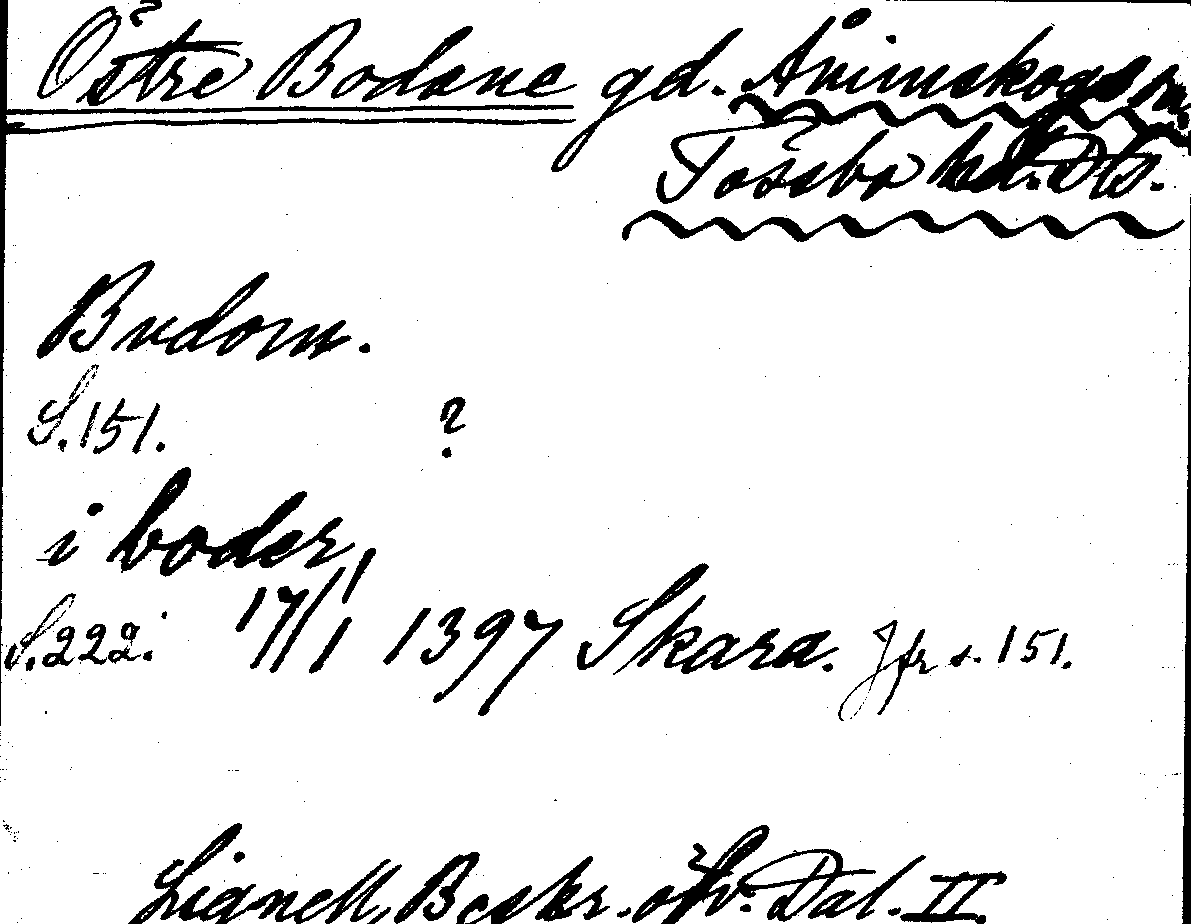 Östre Bodane gd. Ånimskogs sn.
Tössbo hd. Dls.
Budom.
S. 151. ?
i boder,
S. 222. 17/1 1397 Skara. Jfr s. 151.
Lignell, Beskr. öfv. Dal. II